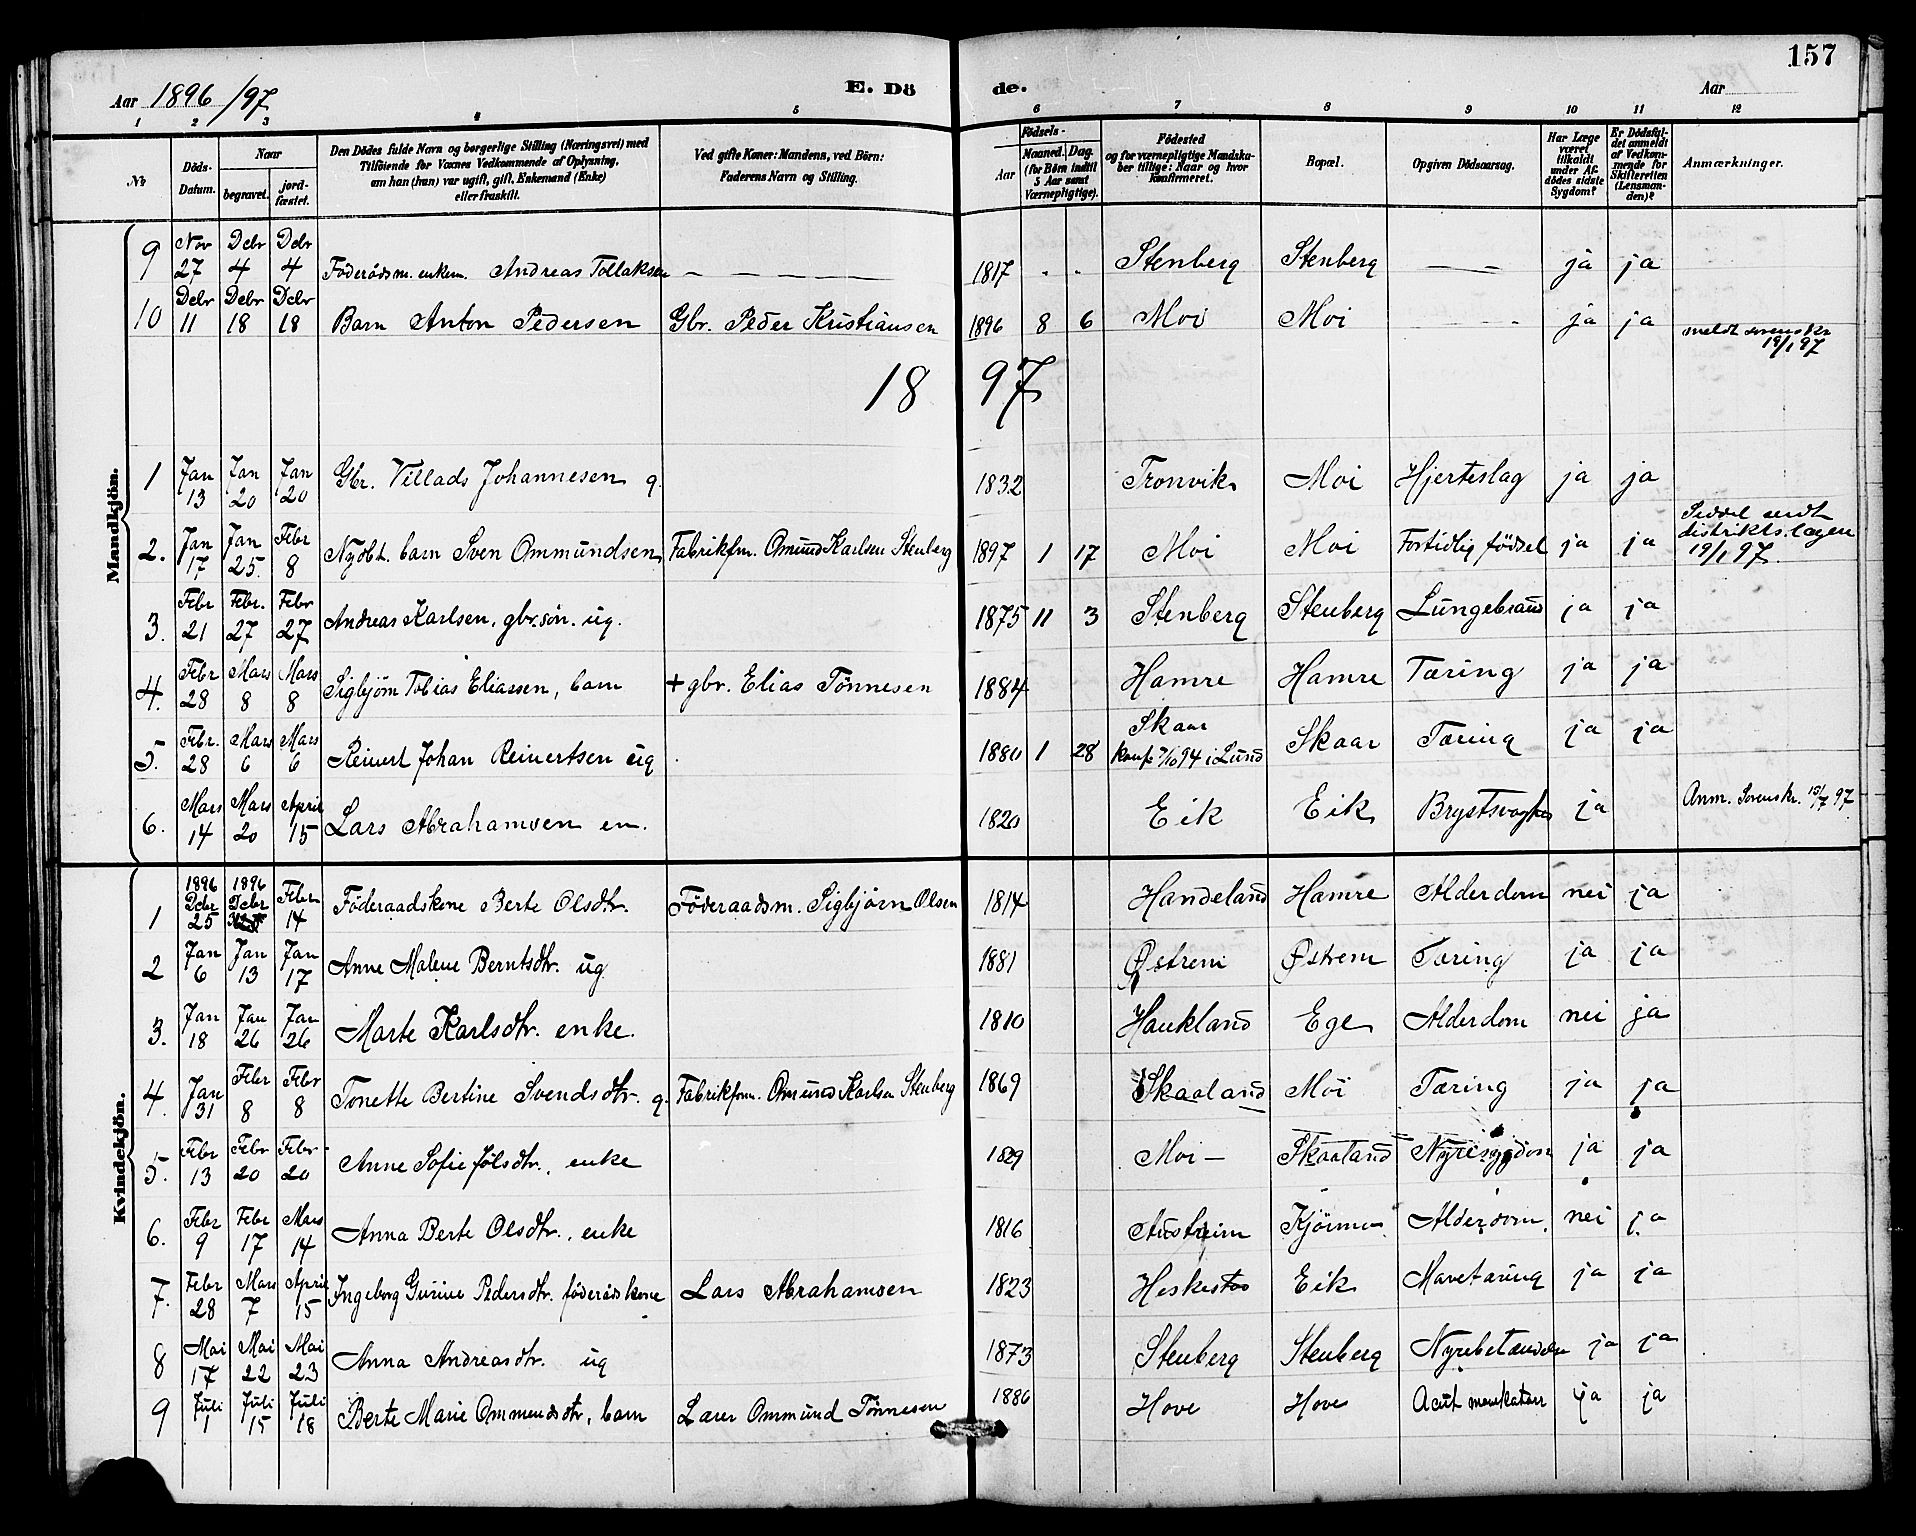 157
Aar 1896/97 E. Dö de. Aar
1 2 3 4 5 6 7 8 9 10 11 12
No
Döds-Datum.
Naar
begravet.
jord-fæstet.
Den Dödes fulde Navn og borgerlige Stilling (Næringsvei) med
Tilföiende for Voxnes Vedkommende af Oplysning,
om han (hun) var ugift, gift, Enkemand (Enke)
eller fraskilt.
Ved gifte Koner: Mandens, ved Börn:
Faderens Navn og Stilling.
Födsels-
Aar
Maaned. Dag.
(for Börn indtil
5 Aar samt
Værnepligtige).
Födested
og for værnepligtige Mandska-
ber tillige: Naar og hvor
Konfirmeret.
Bopæl.
Opgiven Dödsaarsag.
Har Læge
været
tilkaldt
under Af-
dödes sidste
Sygdom?
Er Dödsfal-
det anmeldt
af Vedkom-
mende for
Skifteretten
(Lensman-
den)?
Anmærkninger.
Mandkjön.
9 Nov 27 Debr 4 Debr 4 Föderådsm. enkem. Andreas Tollaksen — — — — 1817 " " Stenberg Stenberg — — ja ja
10 Debr 11 Debr 18 Debr 18 Barn Anton Pedersen Gbr. Peder Kristiansen 1896 8 6 Moi Moi — - ja ja meldt sorenskr 19/1 97
1897
1 Jan 13 Jan 20 Jan 20 Gbr. Villads Johannesen g. 1832 Tronvik Moi Hjerteslag ja ja
2. Jan 17 Jan 25. Febr 8 Nydbt. barn Sven Ommundsen Fabrikfm. Omund Karlsen Stenberg 1897 1 17 Moi Moi Fortidlig födsel ja ja Seddel sendt distriktslægen 19/1 97.
3. Febr 21 Febr. 27 Febr 27 Andreas Karlsen, gbr.søn. ug. 1875 11 3 Stenberg Stenberg Lungebrand ja ja
4. Febr 28 Mars 8 Mars 8 Sigbjörn Tobias Eliassen, barn + gbr. Elias Tönnesen 1884 Hamre Hamre Tæring ja ja
5. Febr. 28 Mars 6 Mars 6 Reinert Johan Reinertsen ug 1880 1 28 Skaar konf. 7/10 94 i Lund Skaar Tæring ja ja
6. Mars 14 Mars 20 April 15 Lars Abrahamsen en. 1820 Eik Eik ja Anm. Sorenskr. 15/7 97
Kvindekjön.
1 1896 Debr 25 1896 Debr Febr 14 Föderaadskone Berte Olsdtr. Föderaadsm. Sigbjørn Olsen 1814 Handeland Hamre Alderdom nei ja
2 Jan 6 Jan 13 Jan 17 Anne Malene Berntsdtr. ug 1881 Østrem Østrem Tæring ja ja
3. Jan 18 Jan 26 Jan 26 Marte Karlsdtr. enke. 1810 Haukland Ege Alderdom nei ja
4. Jan 31 Febr 8 Febr 8 Tonette Bertine Svendsdtr. g. Fabrikfm. Omund Karlsen Stenberg 1869 Skaaland Moi Tæring ja ja
5. Febr 13 Febr 20 Febr 20 Anne Sofie Jølsdtr., enke 1829 Moi — Skaaland Nyresygdom ja ja
6. Febr 9 Febr 17 Mars 14 Anna Berte Olsdtr., enke 1816 Austreim Kjörmo Alderdom. nei ja
7. Febr 28 Mars 7 April 15 Ingeborg Gurine Pedersdtr. föderådskone Lars Abrahamsen 1823 Heskestad Eik Mavetæring ja ja
8 Mai 17 Mai 22 Mai 23 Anna Andreasdtr. ug 1873 Stenberg Stenberg Nyrebetændelse ja ja
9 Juli 1 Juli 15 Juli 18 Berte Marie Ommundsdtr, barn Lærer Ommund Tönnesen 1886 Hove Hove Acut mavekatarr ja ja